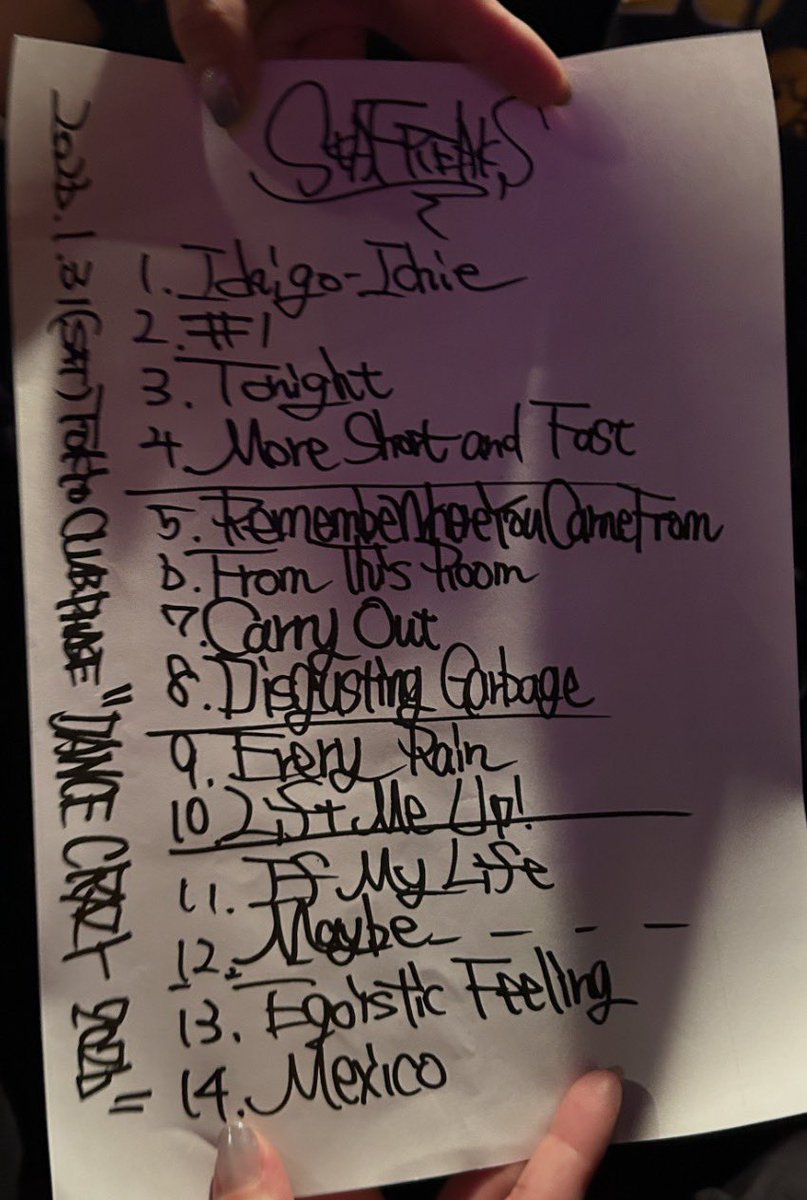 SKAFREAKS
1. Ichigo-Ichie
2. #1
3. Tonight
4. More Short and Fast
5. Remember Where You Came From
6. From This Room
7. Carry Out
8. Disgusting Garbage
9. Every Rain
10. Lift Me Up!
11. If My Life
12. Maybe
13. Egoistic Feeling
14. Mexico
2026.1.31(SAT) TOKYO CLUB PHASE "DANCE CRAZY 2026"